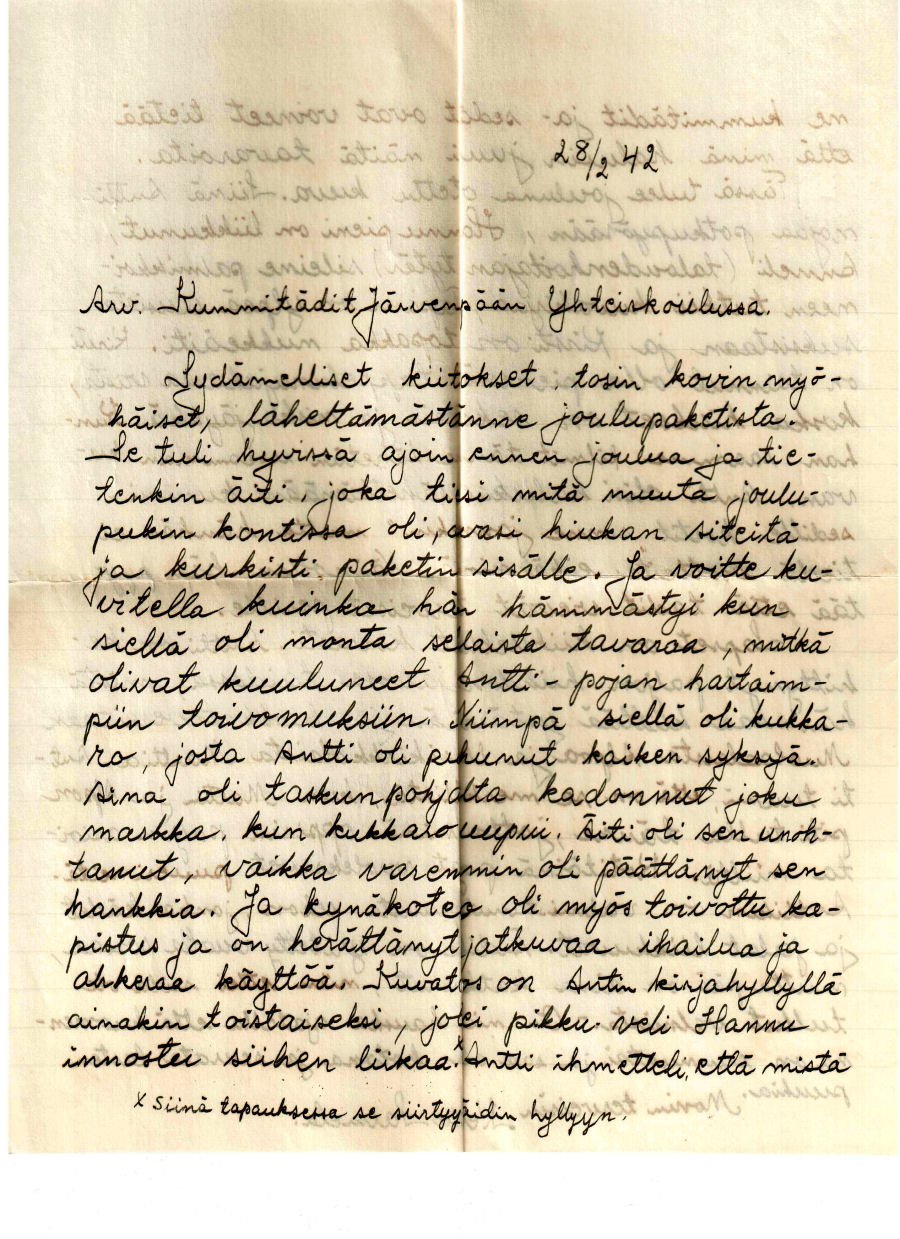 28/2 42
Arv. Kummitädit Järvenpään Yhteiskoulussa.
Sydämelliset kiitokset, tosin kovin myö-
häiset, lähettämästänne joulupaketista.
Se tuli hyvissä ajoin ennen joulua ja tie-
tenkin äiti, joka tiesi mitä muuta joulu-
pukin kontissa oli, avasi hiukan siteitä
ja kurkisti paketin sisälle. Ja voitte ku-
vitella kuinka hän hämmästyi kun
siellä oli monta selaista tavaraa, mitkä
olivat kuuluneet Antti-pojan hartaim-
piin toivomuksiin. Niimpä siellä oli kukka-
ro, josta Antti oli puhunut kaiken syksyä.
Aina oli taskunpohjalta kadonnut joku
markka, kun kukkaro uupui. Äiti oli sen unoh-
tanut, vaikka varemmin oli päättänyt sen
hankkia. Ja kynäkotelo oli myös toivottu ka-
pistus ja on herättänyt jatkuvaa ihailua ja
ahkeraa käyttöä. Kuvatos on Antin kirjahyllyllä
ainakin toistaiseksi, jollei pikku veli Hannu
innostu siihen liikaa.x Antti ihmetteli, että mistä
x Siinä tapauksessa se siirtyy äidin hyllyyn.